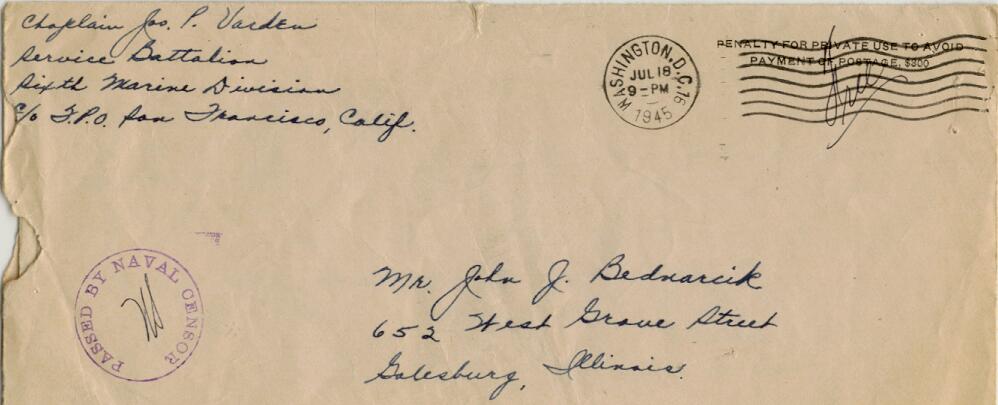 Chaplain Jos. P. Varden
Service Battalion
Sixth Marine Division
c/o F.P.O. San Francisco, Calif.
WASHINGTON, D.C. 16
JUL 18
9 - PM
1945
PENALTY FOR PRIVATE USE TO AVOID
PAYMENT OF POSTAGE, $300
Free
PASSED BY NAVAL CENSOR
Mr. John J. Bednarcik
652 West Grove Street
Galesburg, Illinois.